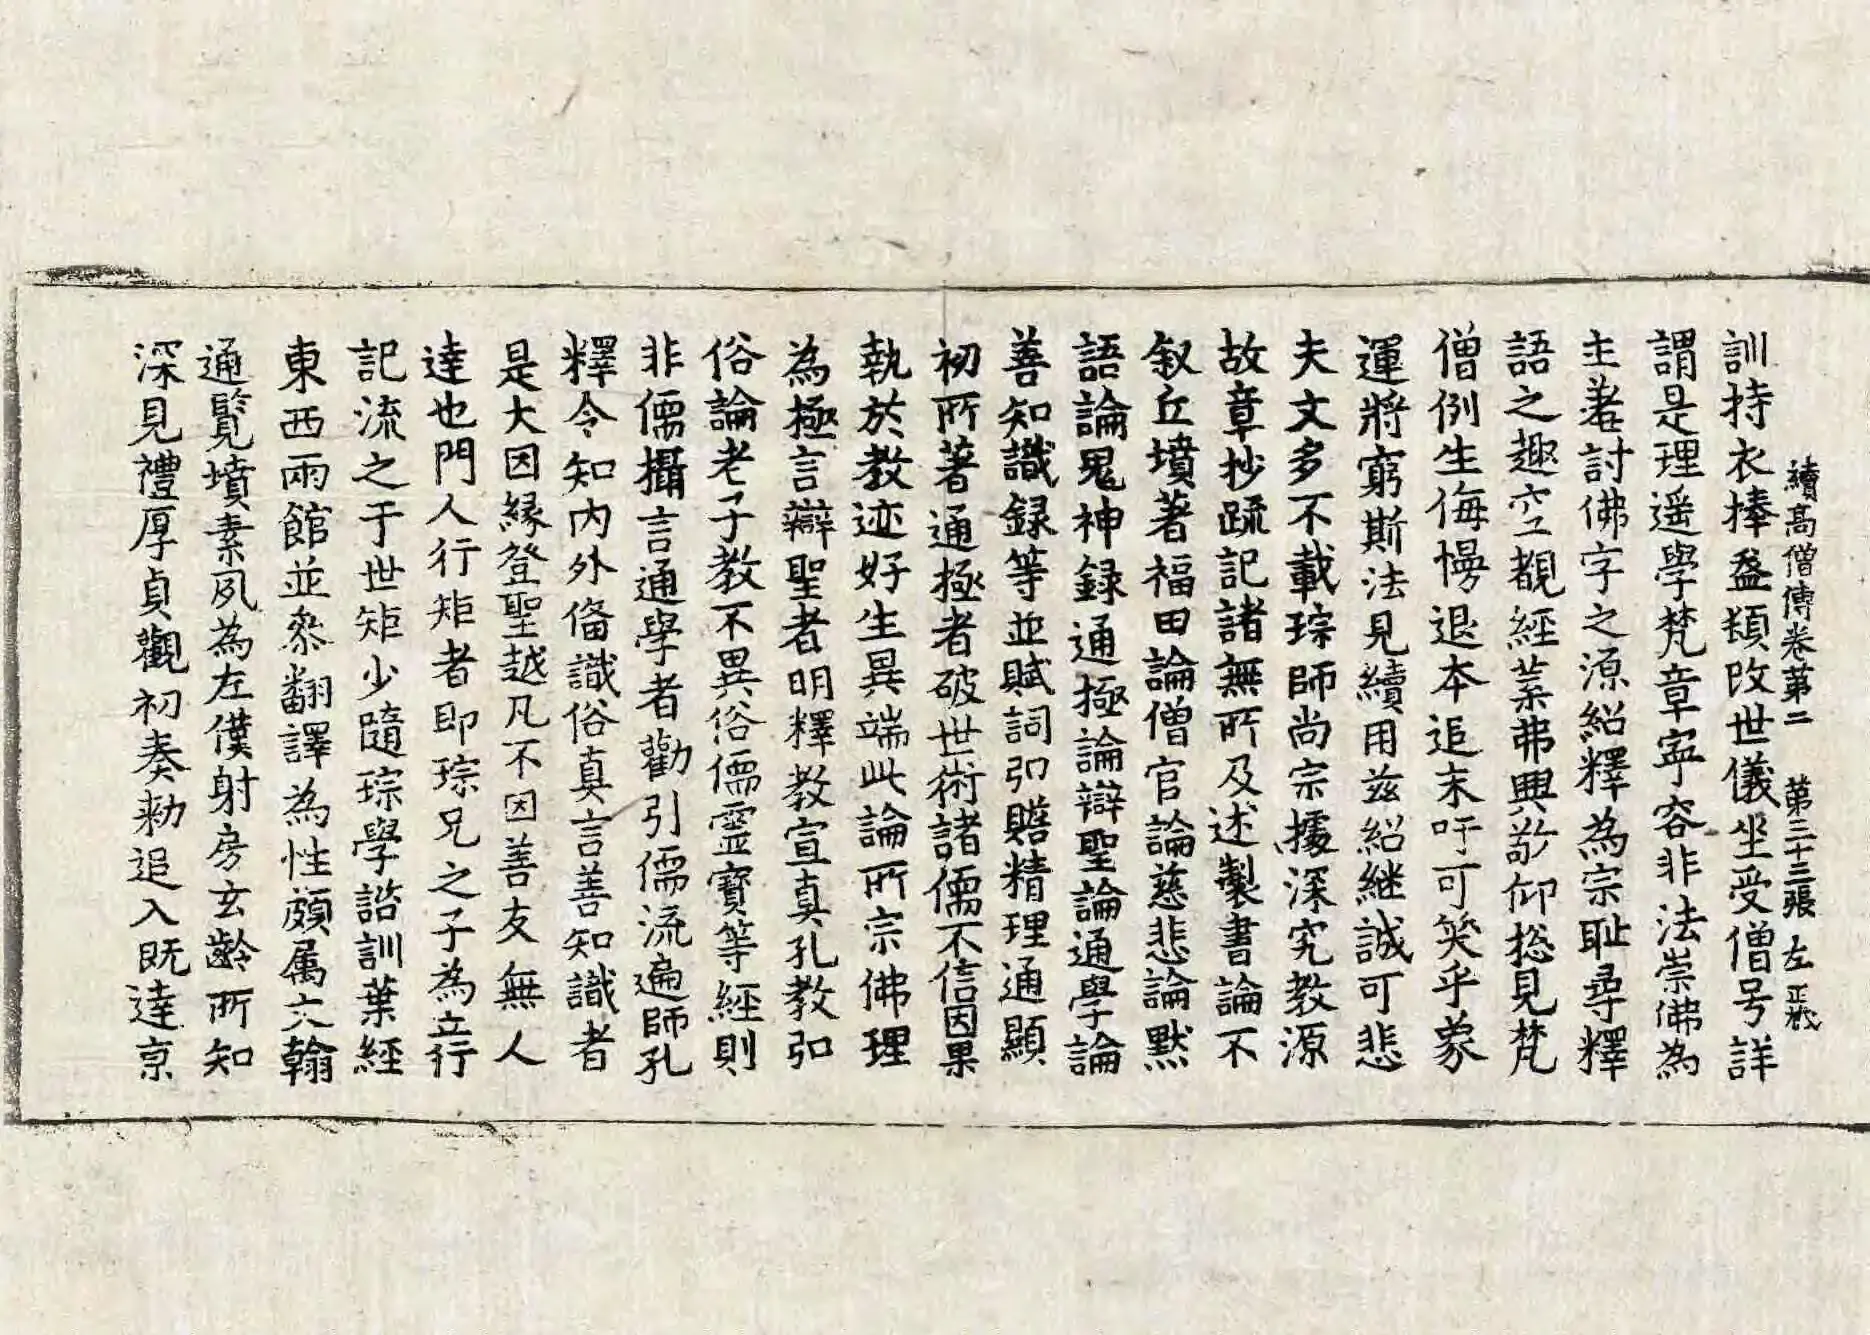 續高僧傳卷第二 第三十三張 左
訓持衣捧盋類改世儀坐受僧号詳
謂是理遥學梵章寜容非法崇佛為
主羞討佛字之源紹釋為宗恥尋釋
語之趣空覩經葉弗興敬仰揔見梵
僧例生侮慢退本追末吁可笑乎象
運將窮斯法見續用兹紹継誠可悲
夫文多不載琮師尚宗據深究教源
故章抄䟽記諸無所及述製書論不
叙丘墳著福田論僧官論慈悲論黙
語論鬼神録通極論辯聖論通學論
善知識録等並賦詞弘贍精理通顯
初所著通極者破世術諸儒不信因果
執於教迹好生異端此論所宗佛理
為極言辯聖者明釋教宣真孔教弘
俗論老子教不異俗儒霊寳等經則
非儒攝言通學者勸引儒流遍師孔
釋令知内外俻識俗真言善知識者
是大因縁登聖越凡不因善友無人
達也門人行矩者即琮兄之子為立行
記流之于世矩少隨琮學諮訓葉經
東西兩館並叅翻譯為性頗属文翰
通覽墳素夙為左僕射房玄齡所知
深見禮厚貞觀初奏勑追入既達京